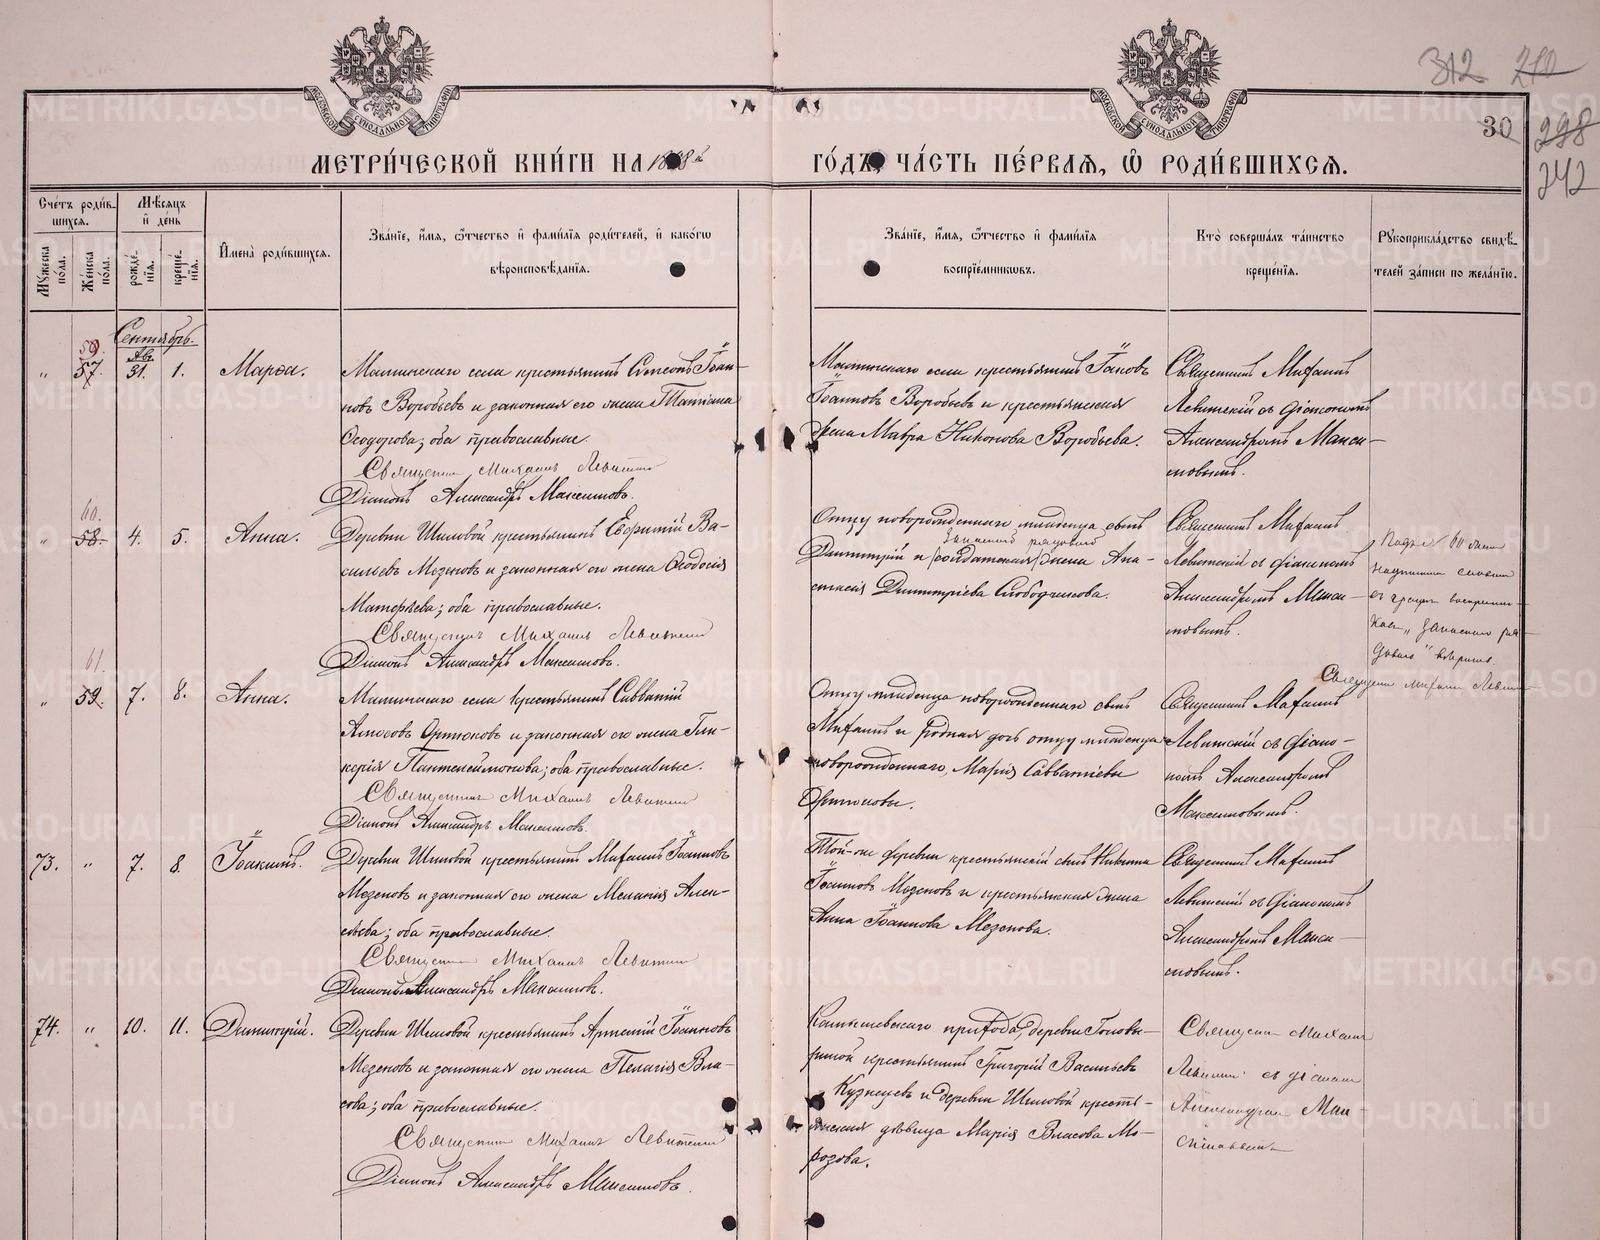 312 210
30 298
242
МЕТРИ́ЧЕСКОЙ КНИ́ГИ НА 1898й ГО́ДЪ, ЧА́СТЬ ПЕ́РВАЯ, Ѡ РОДИ́ВШИХСЯ.
Сче́тъ роди́вшихся.
Мѣ́сяцъ и де́нь
Мꙋ́жеска по́ла.
Же́нска по́ла.
рожде́нїя.
креще́нїя.
И҆мена̀ роди́вшихся.
Зва́нїе, и҆́мя, ѻ҆́тчество и҆ фами́лїя роди́телей, и҆ како́гѡ
вѣроисповѣ́данїя.
Зва́нїе, и҆́мя, ѻ҆́тчество и҆ фами́лїя
воспрїе́мникѡвъ.
Кто̀ соверша́лъ та́инство
креще́нїя.
Рꙋкоприкла́дство свидѣ́телей за́писи по жела́нїю.
Сентябрь.
59.
57. Авг. 31. 1. Марѳа.
Маминскаго села крестьянинъ Симеонъ Іоан-
новъ Воробьевъ и законная его жена Татіана
Ѳеодорова; оба православные.
Священникъ Михаилъ Левитскій
Діаконъ Александръ Максимовъ.
Маминскаго села крестьянинъ Іаковъ
Іоанновъ Воробьевъ и крестьянская
жена Мавра Никонова Воробьева.
Священникъ Михаилъ
Левитскій съ діакономъ
Александромъ Макси-
мовымъ.
60.
58. 4. 5. Анна.
Деревни Шиловой крестьянинъ Евфимій Ва-
сильевъ Мезеновъ и законная его жена Ѳеодосія
Матѳѣева; оба православные.
Священникъ Михаилъ Левитскій
Діаконъ Александръ Максимовъ.
Отцу новорожденнаго младенца сынъ
запаснаго рядоваго
Димитрій и (солдатская) жена Ана-
стасія Димитріева Слободчикова.
Священникъ Михаилъ
Левитскій съ діакономъ
Александромъ Макси-
мовымъ.
надписанному
въ графѣ воспріемни-
ковъ „запаснаго ря-
доваго" вѣрить.
Священникъ Михаилъ Левит
61.
59. 7. 8. Анна.
Маминскаго села крестьянинъ Савватій
Амосовъ Ортюковъ и законная его жена Гли-
керія Пантелеймонова; оба православные.
Священникъ Михаилъ Левитскій
Діаконъ Александръ Максимовъ.
Отцу младенца новорожденнаго сынъ
Михаилъ и родная дочь отцу младенца
новорожденнаго, Марія Савватіевы
Ортюковы.
Священникъ Михаилъ
Левитскій съ діако-
номъ Александромъ
Максимовымъ.
73. " 7. 8. Іоакимъ.
Деревни Шиловой крестьянинъ Михаилъ Іоанновъ
Мезеновъ и законная его жена Меланія Алек-
сѣева; оба православные.
Священникъ Михаилъ Левитскій
Діаконъ Александръ Максимовъ.
Той-же деревни крестьянскій сынъ Никита
Іоанновъ Мезеновъ и крестьянская жена
Анна Іоаннова Мезенова.
Священникъ Михаилъ
Левитскій съ діакономъ
Александромъ Макси-
мовымъ.
74. " 10. 11. Димитрій.
Деревни Шиловой крестьянинъ Артемій Іоанновъ
Мезеновъ и законная его жена Пелагія Вла-
сова; оба православные.
Священникъ Михаилъ Левитскій
Діаконъ Александръ Максимовъ.
Камышевскаго прихода, деревни Головы-
риной крестьянинъ Григорій Васильевъ
Кузнецовъ и деревни Шиловой кресть-
янская дѣвица Марія Власова Мо-
розова.
Священникъ Михаилъ
Левитскій съ діакономъ
Александромъ Мак-
симовымъ
METRIKI.GASO-URAL.RU